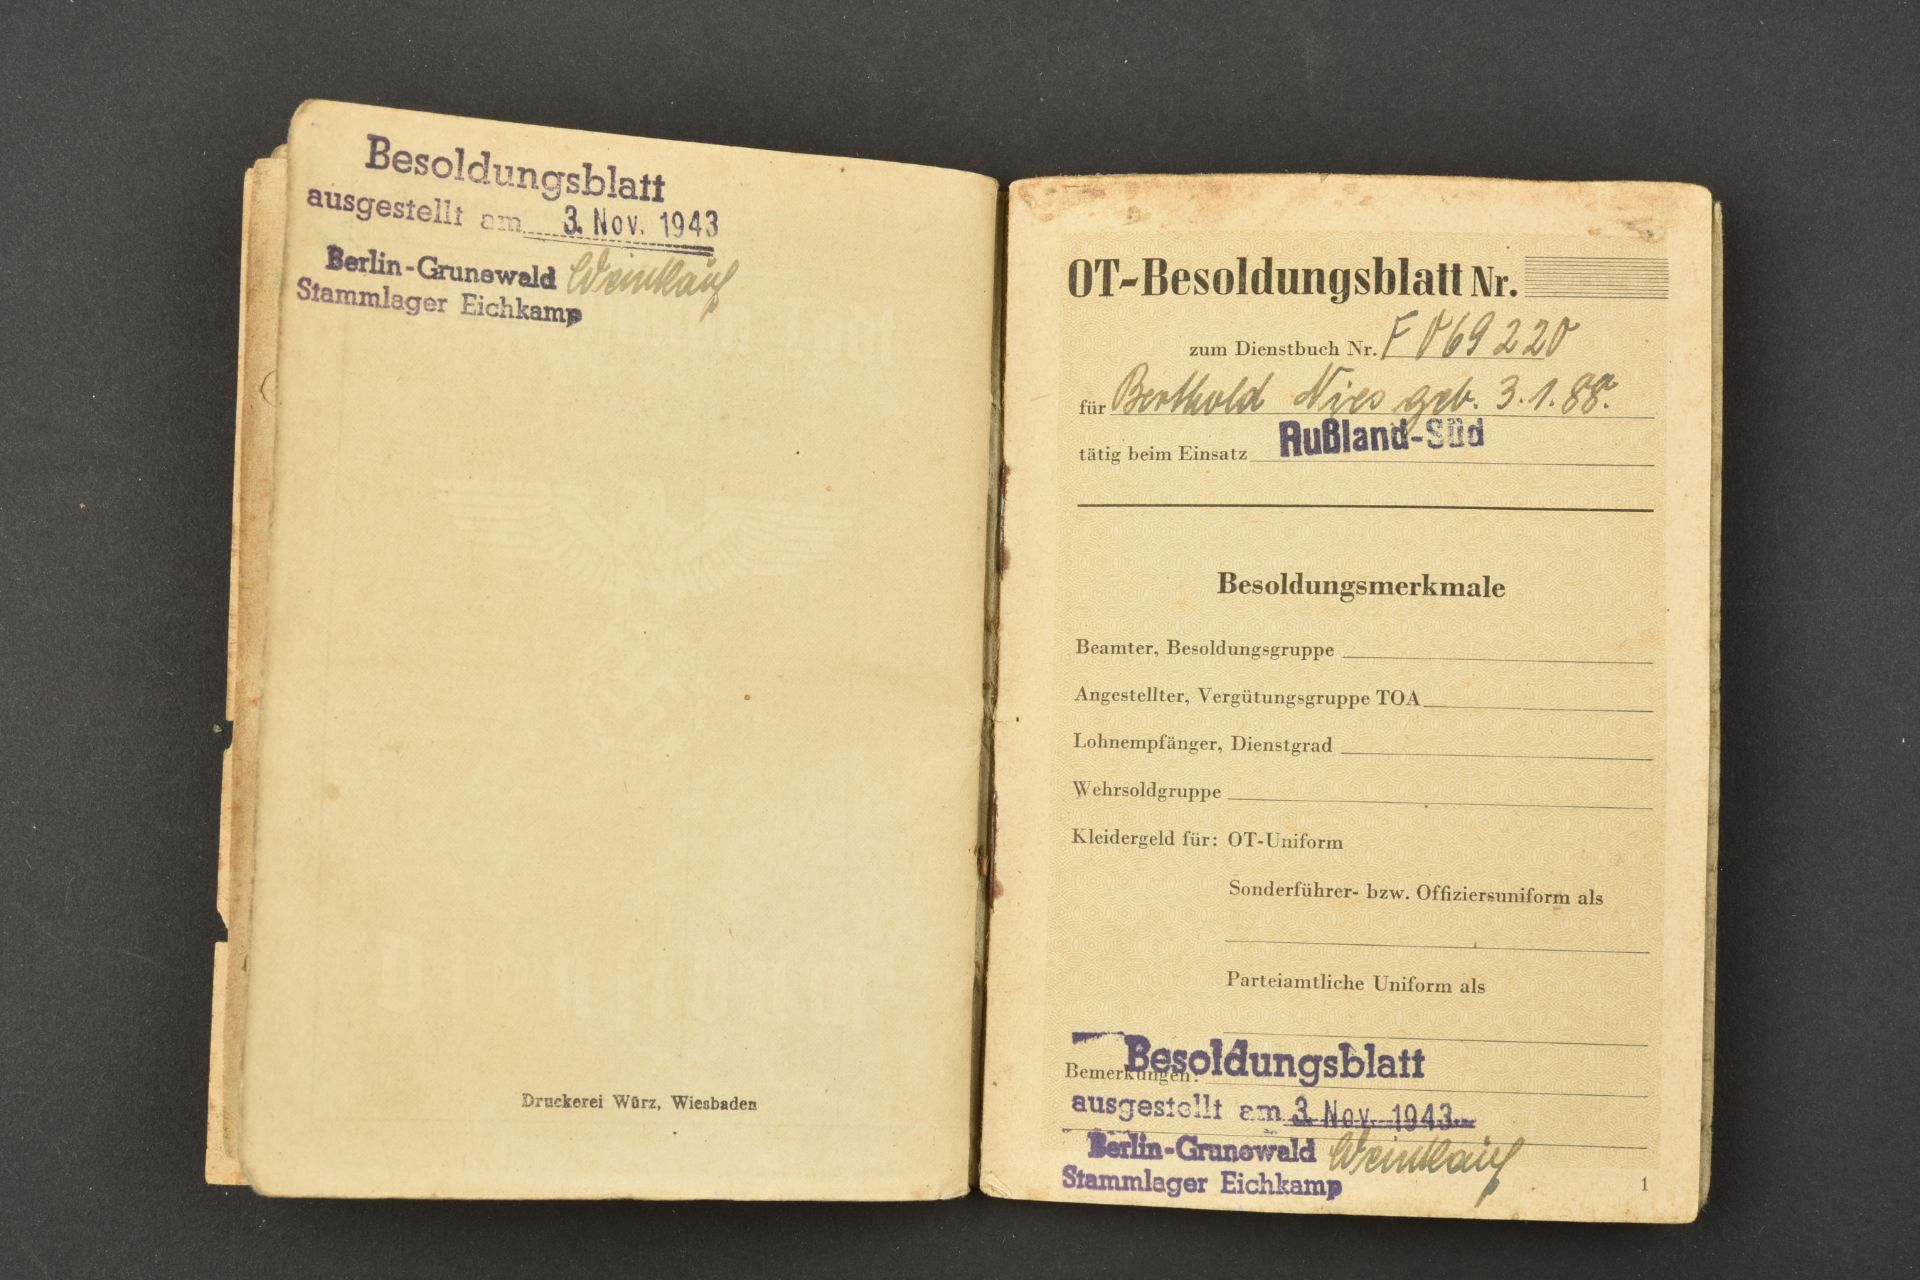 Besoldungsblatt
ausgestellt am 3. Nov. 1943
Berlin-Grunewald Weinkauf
Stammlager Eichkamp
Druckerei Würz, Wiesbaden
OT-Besoldungsblatt Nr.
zum Dienstbuch Nr. F 069220
für Berthold Nies geb. 3.1.88.
tätig beim Einsatz Rußland-Süd
Besoldungsmerkmale
Beamter, Besoldungsgruppe
Angestellter, Vergütungsgruppe TOA
Lohnempfänger, Dienstgrad
Wehrsoldgruppe
Kleidergeld für: OT-Uniform
Sonderführer- bzw. Offiziersuniform als
Parteiamtliche Uniform als
Besoldungsblatt
Bemerkungen:
ausgestellt am 3. Nov. 1943
Berlin-Grunewald Weinkauf
Stammlager Eichkamp
1